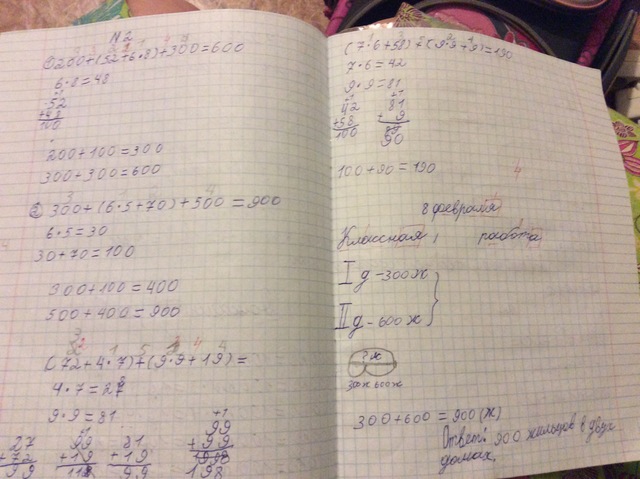 N2
① 200+(52+6·8)+300=600
6·8=48
52
+48
100
200+100=300
300+300=600
② 300+(6·5+70)+500=900
6·5=30
30+70=100
300+100=400
500+400=900
(72+4·7)+(9·9+19)=
4·7=27
9·9=81
27
+72
99
99
+19
118
81
+19
99
+1
99
+99
198
(7·6+58)+(9·9+9)=190
7·6=42
9·9=81
42
+58
100
81
+9
90
100+90=190
8 февраля
Классная работа
I д-300ж
II д-600ж
? ж
300ж 600ж
300+600=900(ж)
Ответ: 900 жильцов в двух
домах.